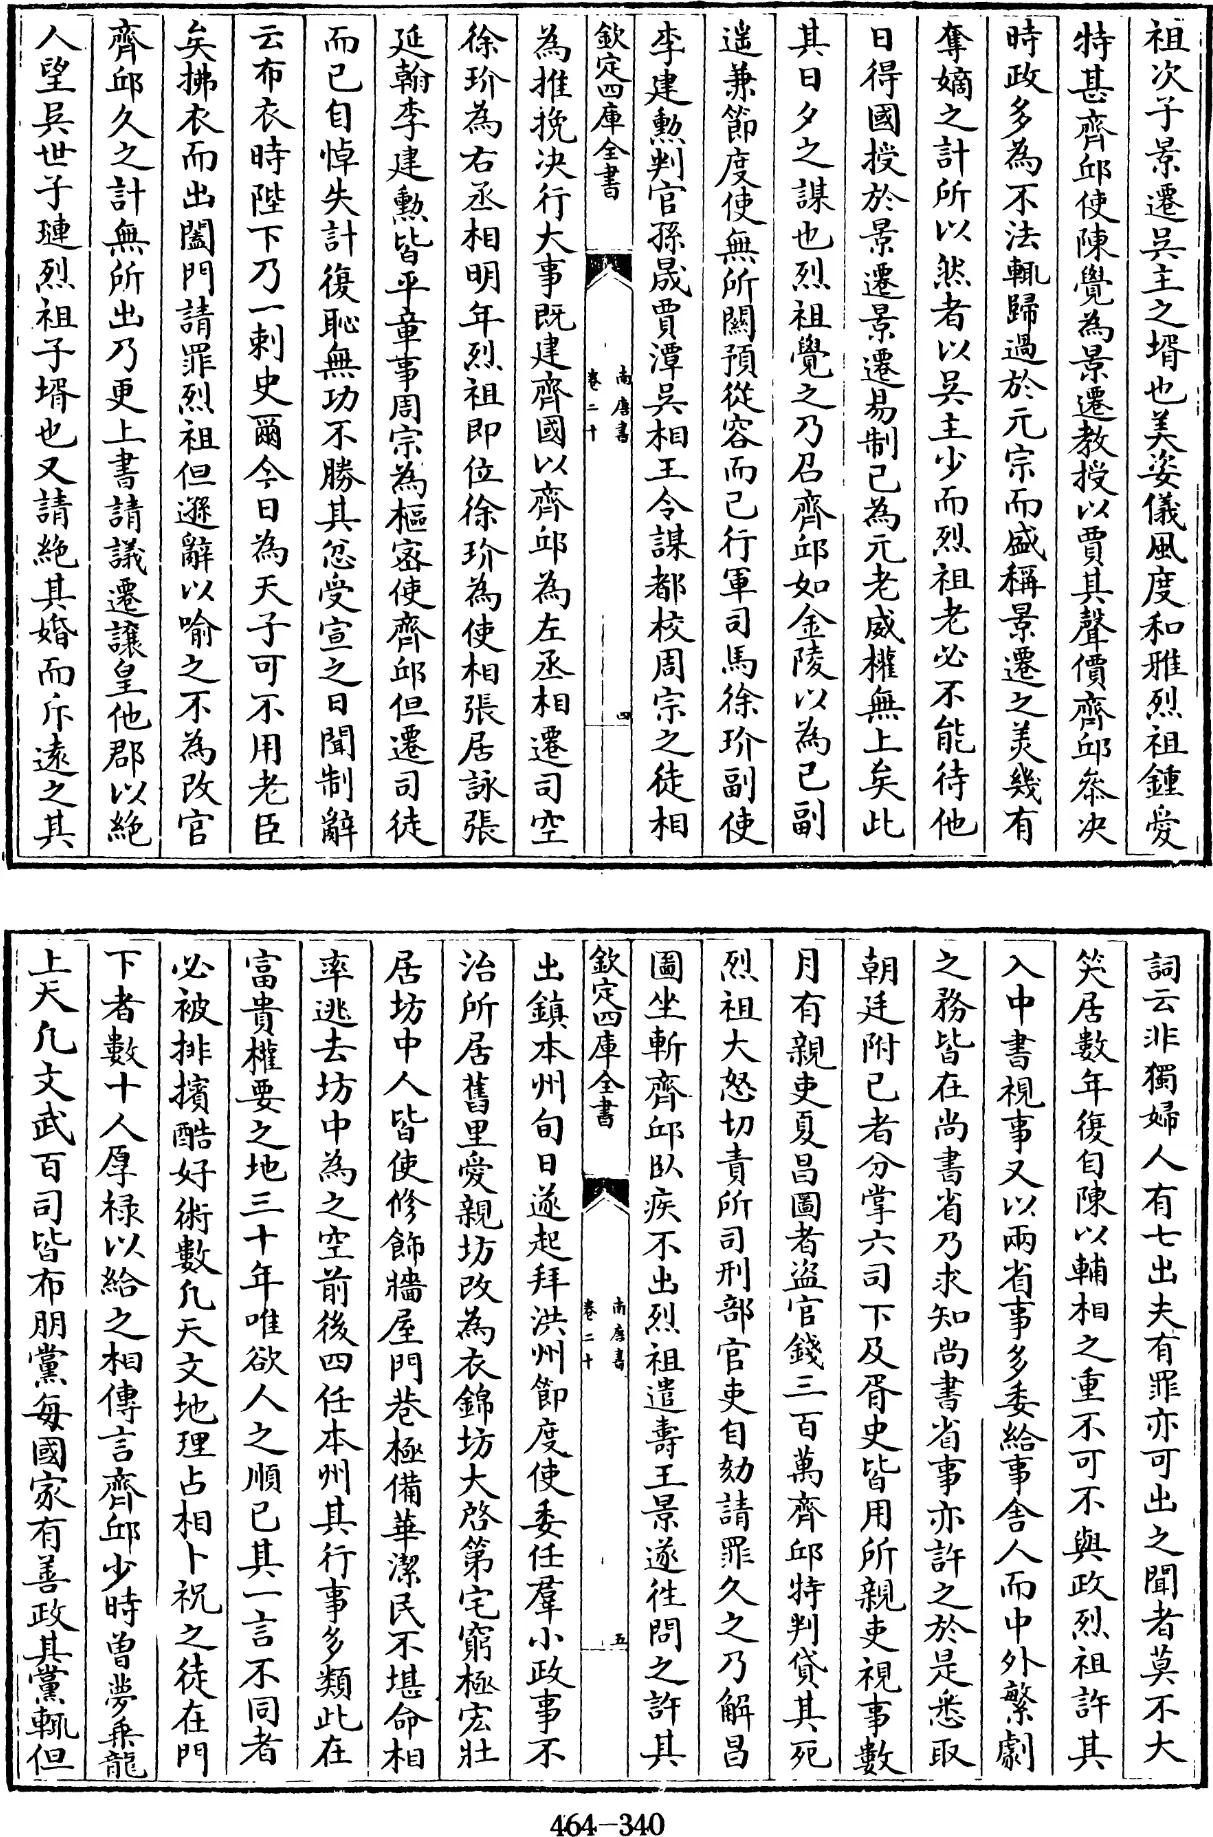 祖次子景遷吳主之壻也美姿儀風度和雅烈祖鍾愛
特甚齊邱使陳覺為景遷教授以賈其聲價齊邱叅決
時政多為不法輒歸過於元宗而盛稱景遷之美幾有
奪嫡之計所以然者以吳主少而烈祖老必不能待他
日得國授於景遷景遷易制已為元老威權無上矣此
其日夕之謀也烈祖覺之乃召齊邱如金陵以為已副
遥兼節度使無所關預從容而已行軍司馬徐玠副使
李建勲判官孫晟賈潭吳相王令謀都校周宗之徒相
欽定四庫全書
南唐書
卷二十
四
為推挽決行大事既建齊國以齊邱為左丞相遷司空
徐玠為右丞相明年烈祖即位徐玠為使相張居詠張
延翰李建勲皆平章事周宗為樞密使齊邱但遷司徒
而已自悼失計復恥無功不勝其忿受宣之日聞制辭
云布衣時陛下乃一刺史爾今日為天子可不用老臣
矣拂衣而出闔門請罪烈祖但遜辭以喻之不為改官
齊邱久之計無所出乃更上書請議遷讓皇他郡以絶
人望吳世子璉烈祖子壻也又請絶其婚而斥遠之其
詞云非獨婦人有七出夫有罪亦可出之聞者莫不大
笑居數年復自陳以輔相之重不可不與政烈祖許其
入中書視事又以兩省事多委給事舍人而中外繁劇
之務皆在尚書省乃求知尚書省事亦許之於是悉取
朝廷附已者分掌六司下及胥史皆用所親吏視事數
月有親吏夏昌圖者盜官錢三百萬齊邱特判貸其死
烈祖大怒切責所司刑部官吏自劾請罪久之乃解昌
圖坐斬齊邱臥疾不出烈祖遣壽王景遂徃問之許其
欽定四庫全書
南唐書
卷二十
五
出鎮本州旬日遂起拜洪州節度使委任羣小政事不
治所居舊里愛親坊改為衣錦坊大啓第宅窮極宏壯
居坊中人皆使修飾牆屋門巷極備華潔民不堪命相
率逃去坊中為之空前後四任本州其行事多類此在
富貴權要之地三十年唯欲人之順已其一言不同者
必被排擯酷好術數凡天文地理占相卜祝之徒在門
下者數十人厚禄以給之相傳言齊邱少時曾夢乘龍
上天凡文武百司皆布朋黨每國家有善政其黨輒但
464-340